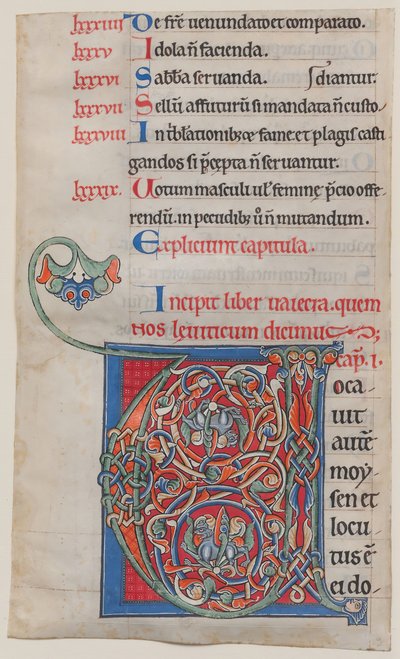 lxxxiiii De fr̄e uenundato et comparato.
lxxxv Idola ñ facienda.
lxxxvi Sabba seruanda. diantur.
lxxxvii Sellū affuturū si mandata ñ custo-
lxxxviii In tⁱblationibꝫ ac fame et plagis casti
gandos si p̄cepta ñ seruantur.
lxxxix. Uotum masculi ul' femine p̄cio offe-
rendū. in pecudibꝫ ū ñ mutandum.
Expliciunt capitula.
Incipit liber uaiecra. quem
nos leuiticum dicimus;
cap̄. i.
Voca-
uit
autē
moy-
sen et
locu-
tus ē
ei do-